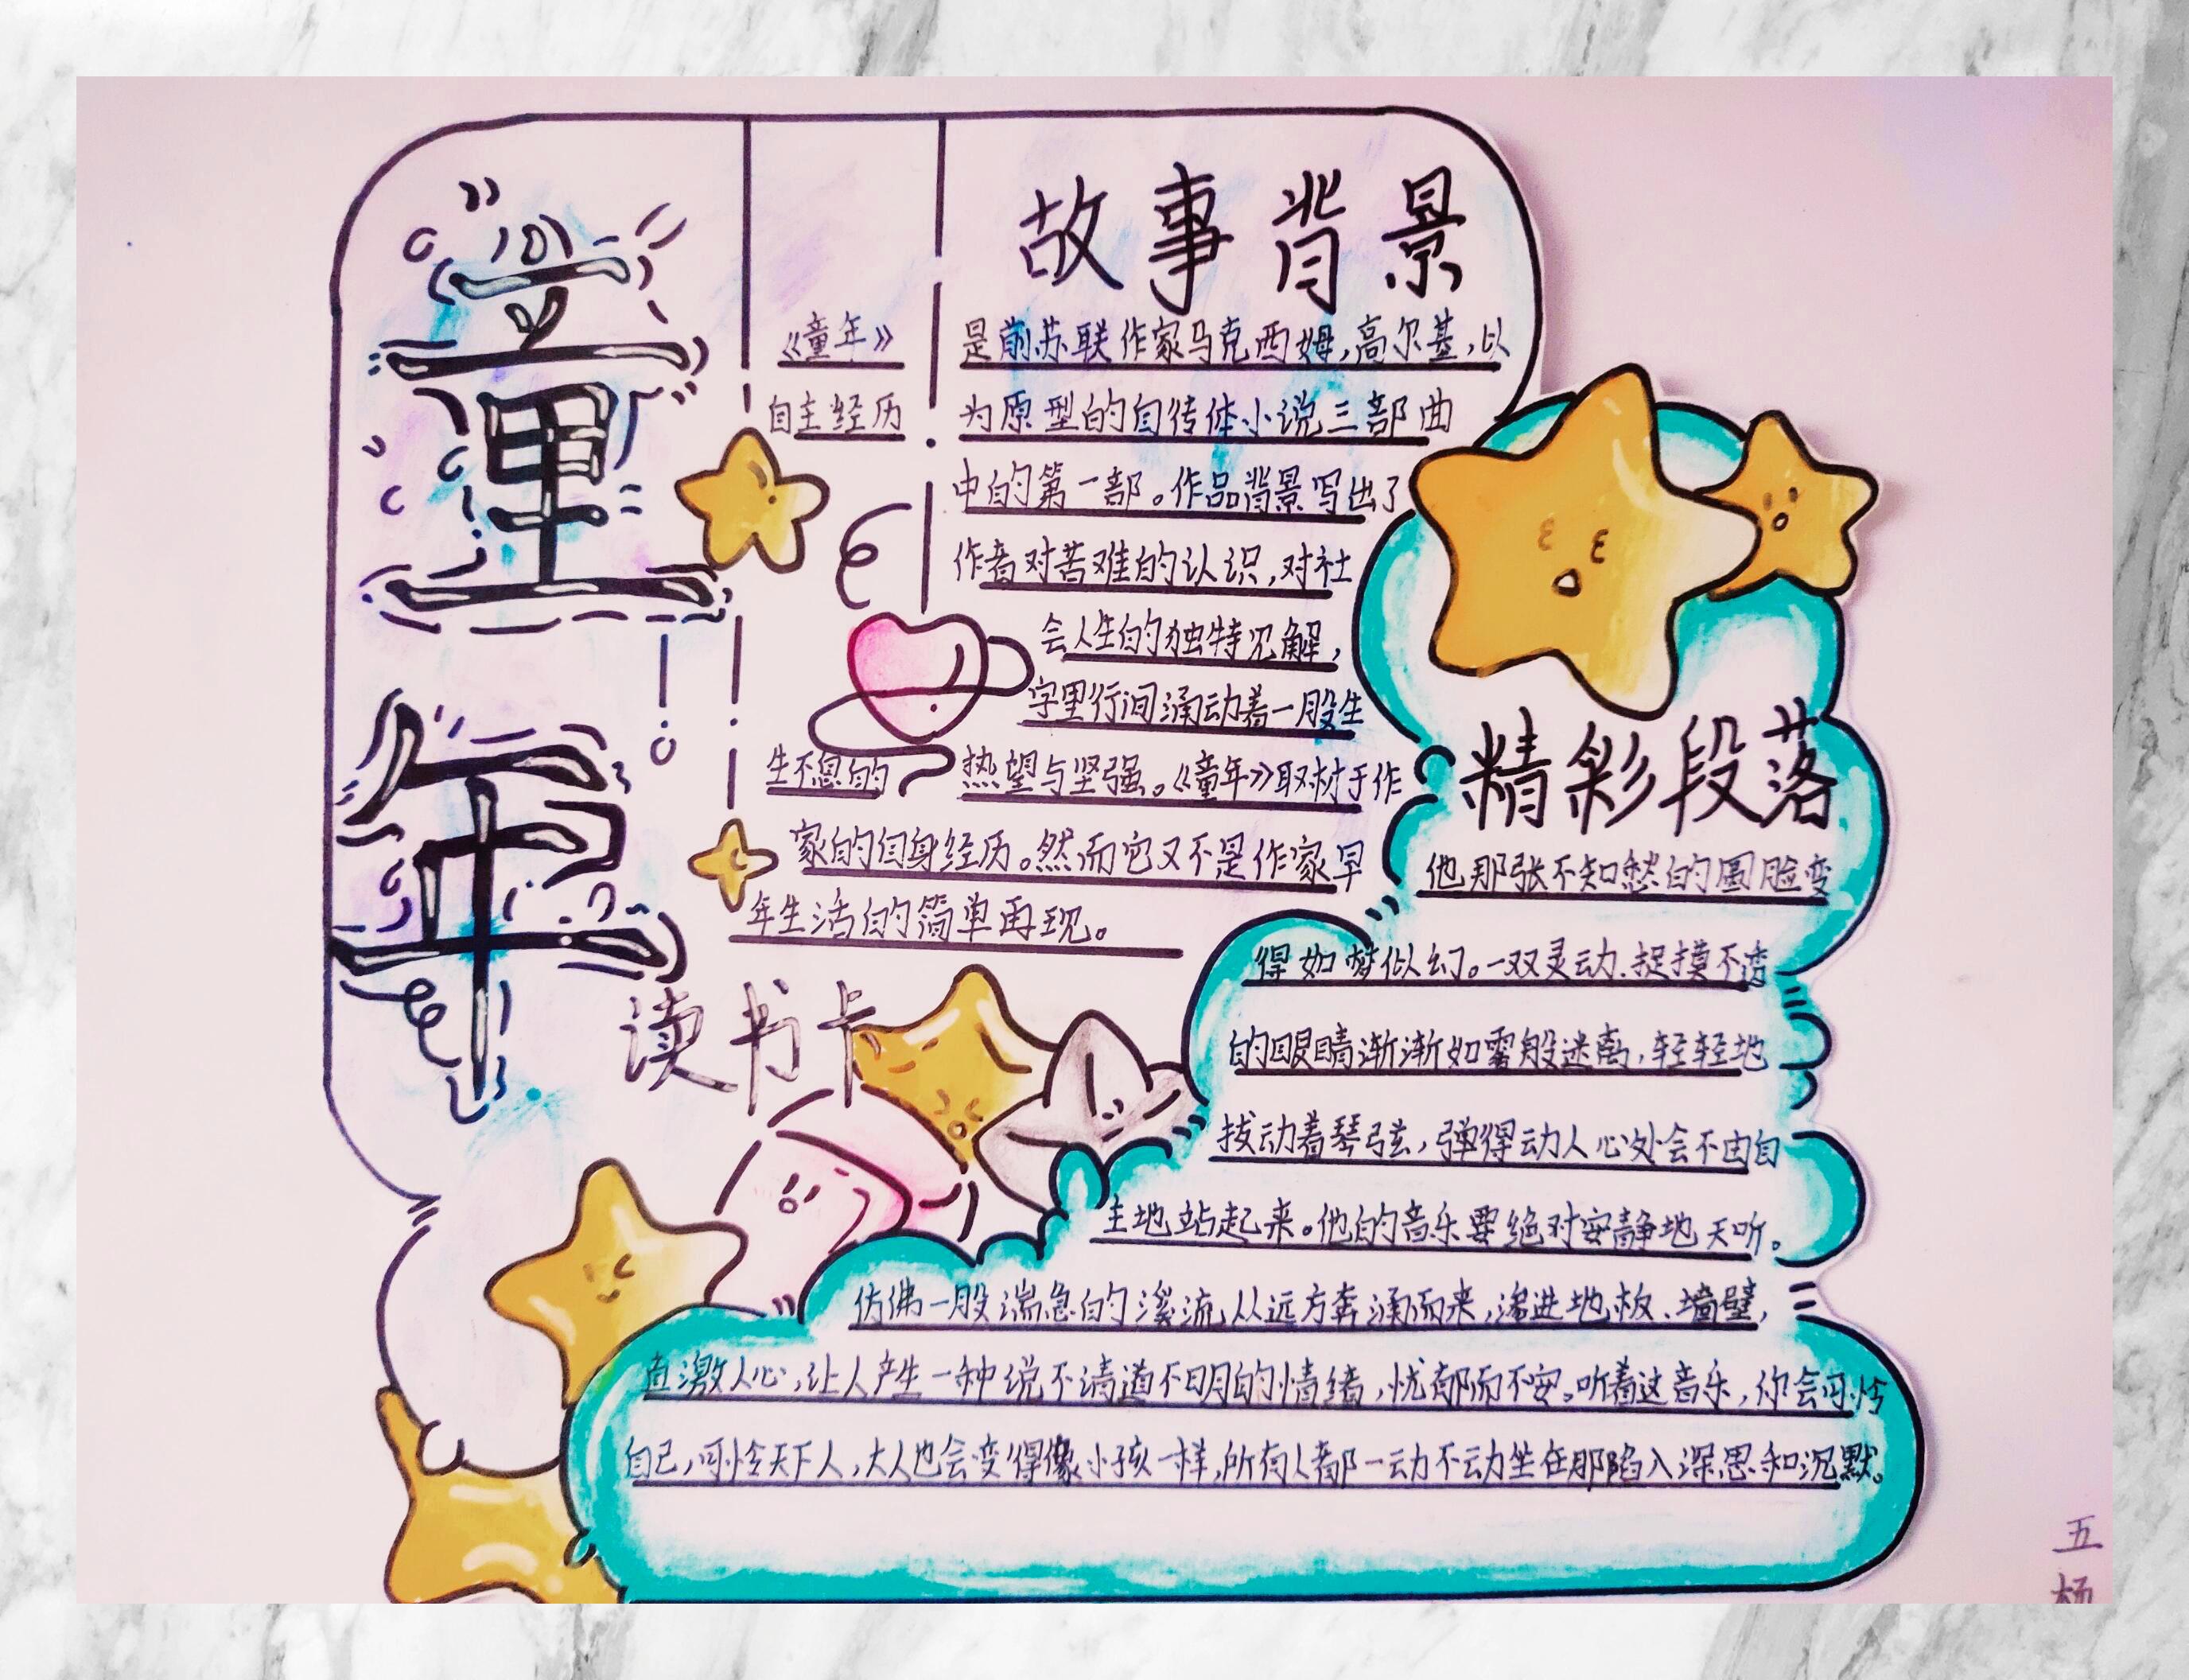 童年
故事背景
《童年》是前苏联作家马克西姆，高尔基，以
自主经历为原型的自传体小说三部曲
中的第一部。作品背景写出了
作者对苦难的认识，对社
会人生的独特见解，
字里行间涌动着一股生
生不息的热望与坚强。《童年》取材于作
家的自身经历。然而它又不是作家早
年生活的简单再现。
读书卡
精彩段落
他那张不知愁的圆脸变
得如梦似幻。一双灵动、捉摸不透
的眼睛渐渐如雾般迷离，轻轻地
拔动着琴弦，弹得动人心处会不由自
主地站起来。他的音乐要绝对安静地天听。
仿佛一股湍急的溪流，从远方奔涌而来，渗进地板、墙壁，
直激人心，让人产生一种说不清道不明的情绪，忧郁而不安。听着这音乐，你会可怜
自己，可怜天下人，大人也会变得像小孩一样，所有人都一动不动坐在那陷入深思和沉默。
五
杨